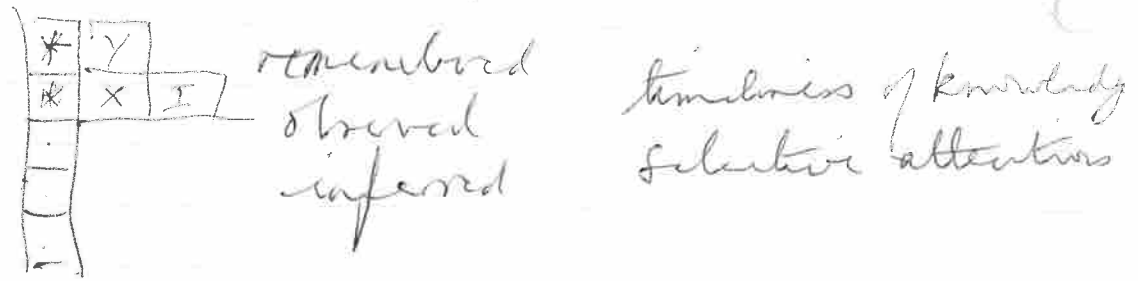 * Y
* X I
remembered
observed
inferred
timeliness of knowledge
selective attention